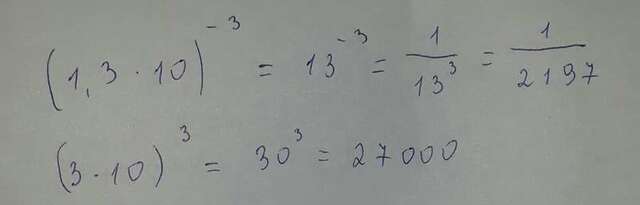 (1,3 · 10)^{-3} = 13^{-3} = \frac{1}{13^3} = \frac{1}{2197}
(3 · 10)^3 = 30^3 = 27000